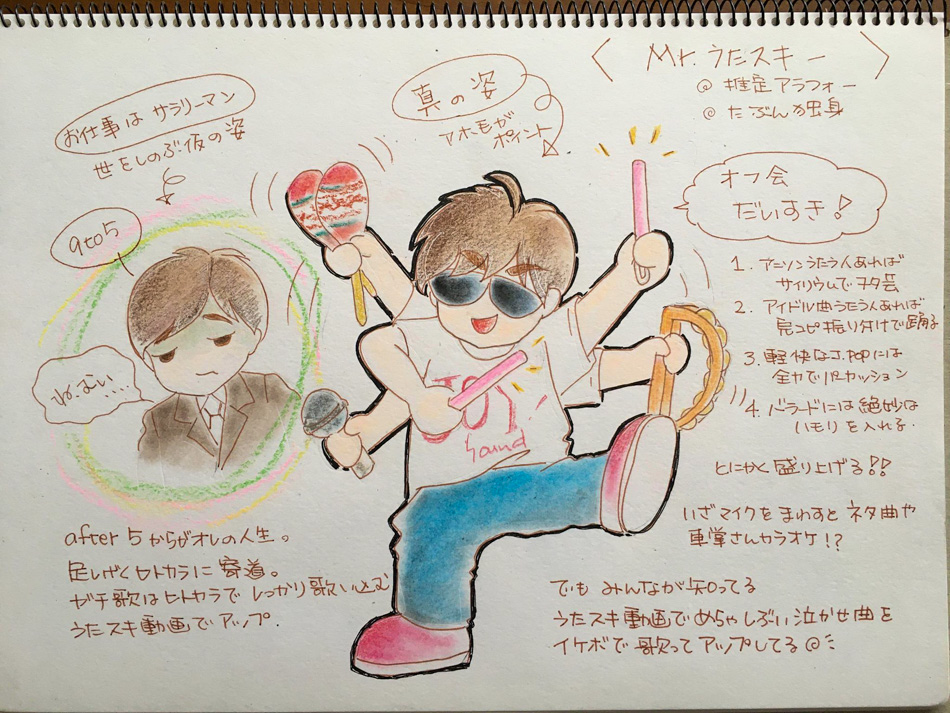 〈 Mr. うたスキー 〉
◎ 推定アラフォー
◎ たぶん独身
真の姿
アホ毛が
ポイント
お仕事は サラリーマン
世をしのぶ仮の姿
9to5
は、はい…
オフ会
だいすき!
1. アニソンうたう人あれば
サイリウムでヲタ芸
2. アイドル曲うたう人あれば
完コピ振り付けで踊る
3. 軽快なJ.POPには
全力でパーカッション
4. バラードには絶妙な
ハモリを入れる.
とにかく盛り上げる!!
いざマイクをまわすと ネタ曲や
車掌さんカラオケ!?
JOY
Sound
after 5 からがオレの人生。
足しげくヒトカラに寄道。
ガチ歌はヒトカラでしっかり歌い込む
うたスキ動画でアップ.
でも みんなが知ってる
うたスキ動画でめちゃしぶい泣かせ曲を
イケボで歌ってアップしてる◎